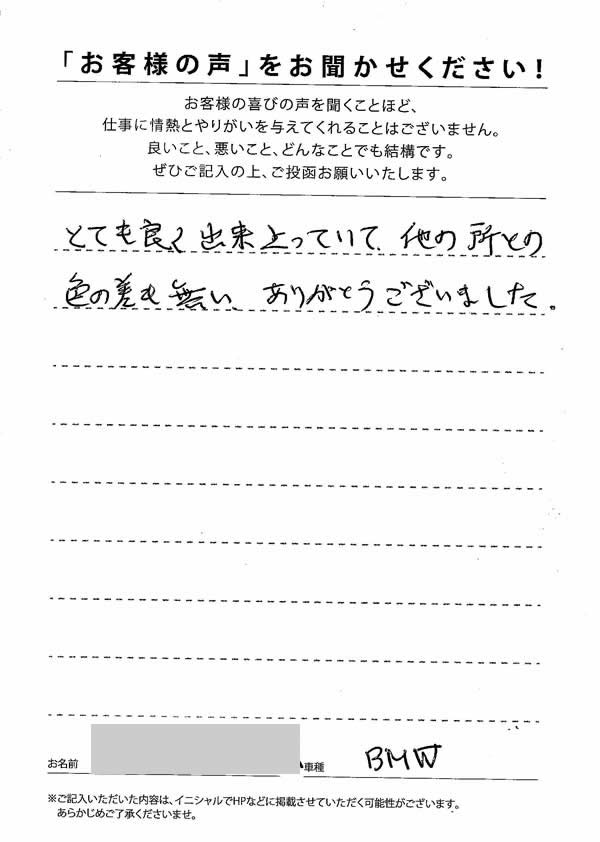 「お客様の声」をお聞かせください！
お客様の喜びの声を聞くことほど、
仕事に情熱とやりがいを与えてくれることはございません。
良いこと、悪いこと、どんなことでも結構です。
ぜひご記入の上、ご投函お願いいたします。
とても良く出来上っていて、他の所との
色の差も無い、ありがとうございました。
お名前 車種 BMW
※ご記入いただいた内容は、イニシャルでHPなどに掲載させていただく可能性がございます。
あらかじめご了承くださいませ。